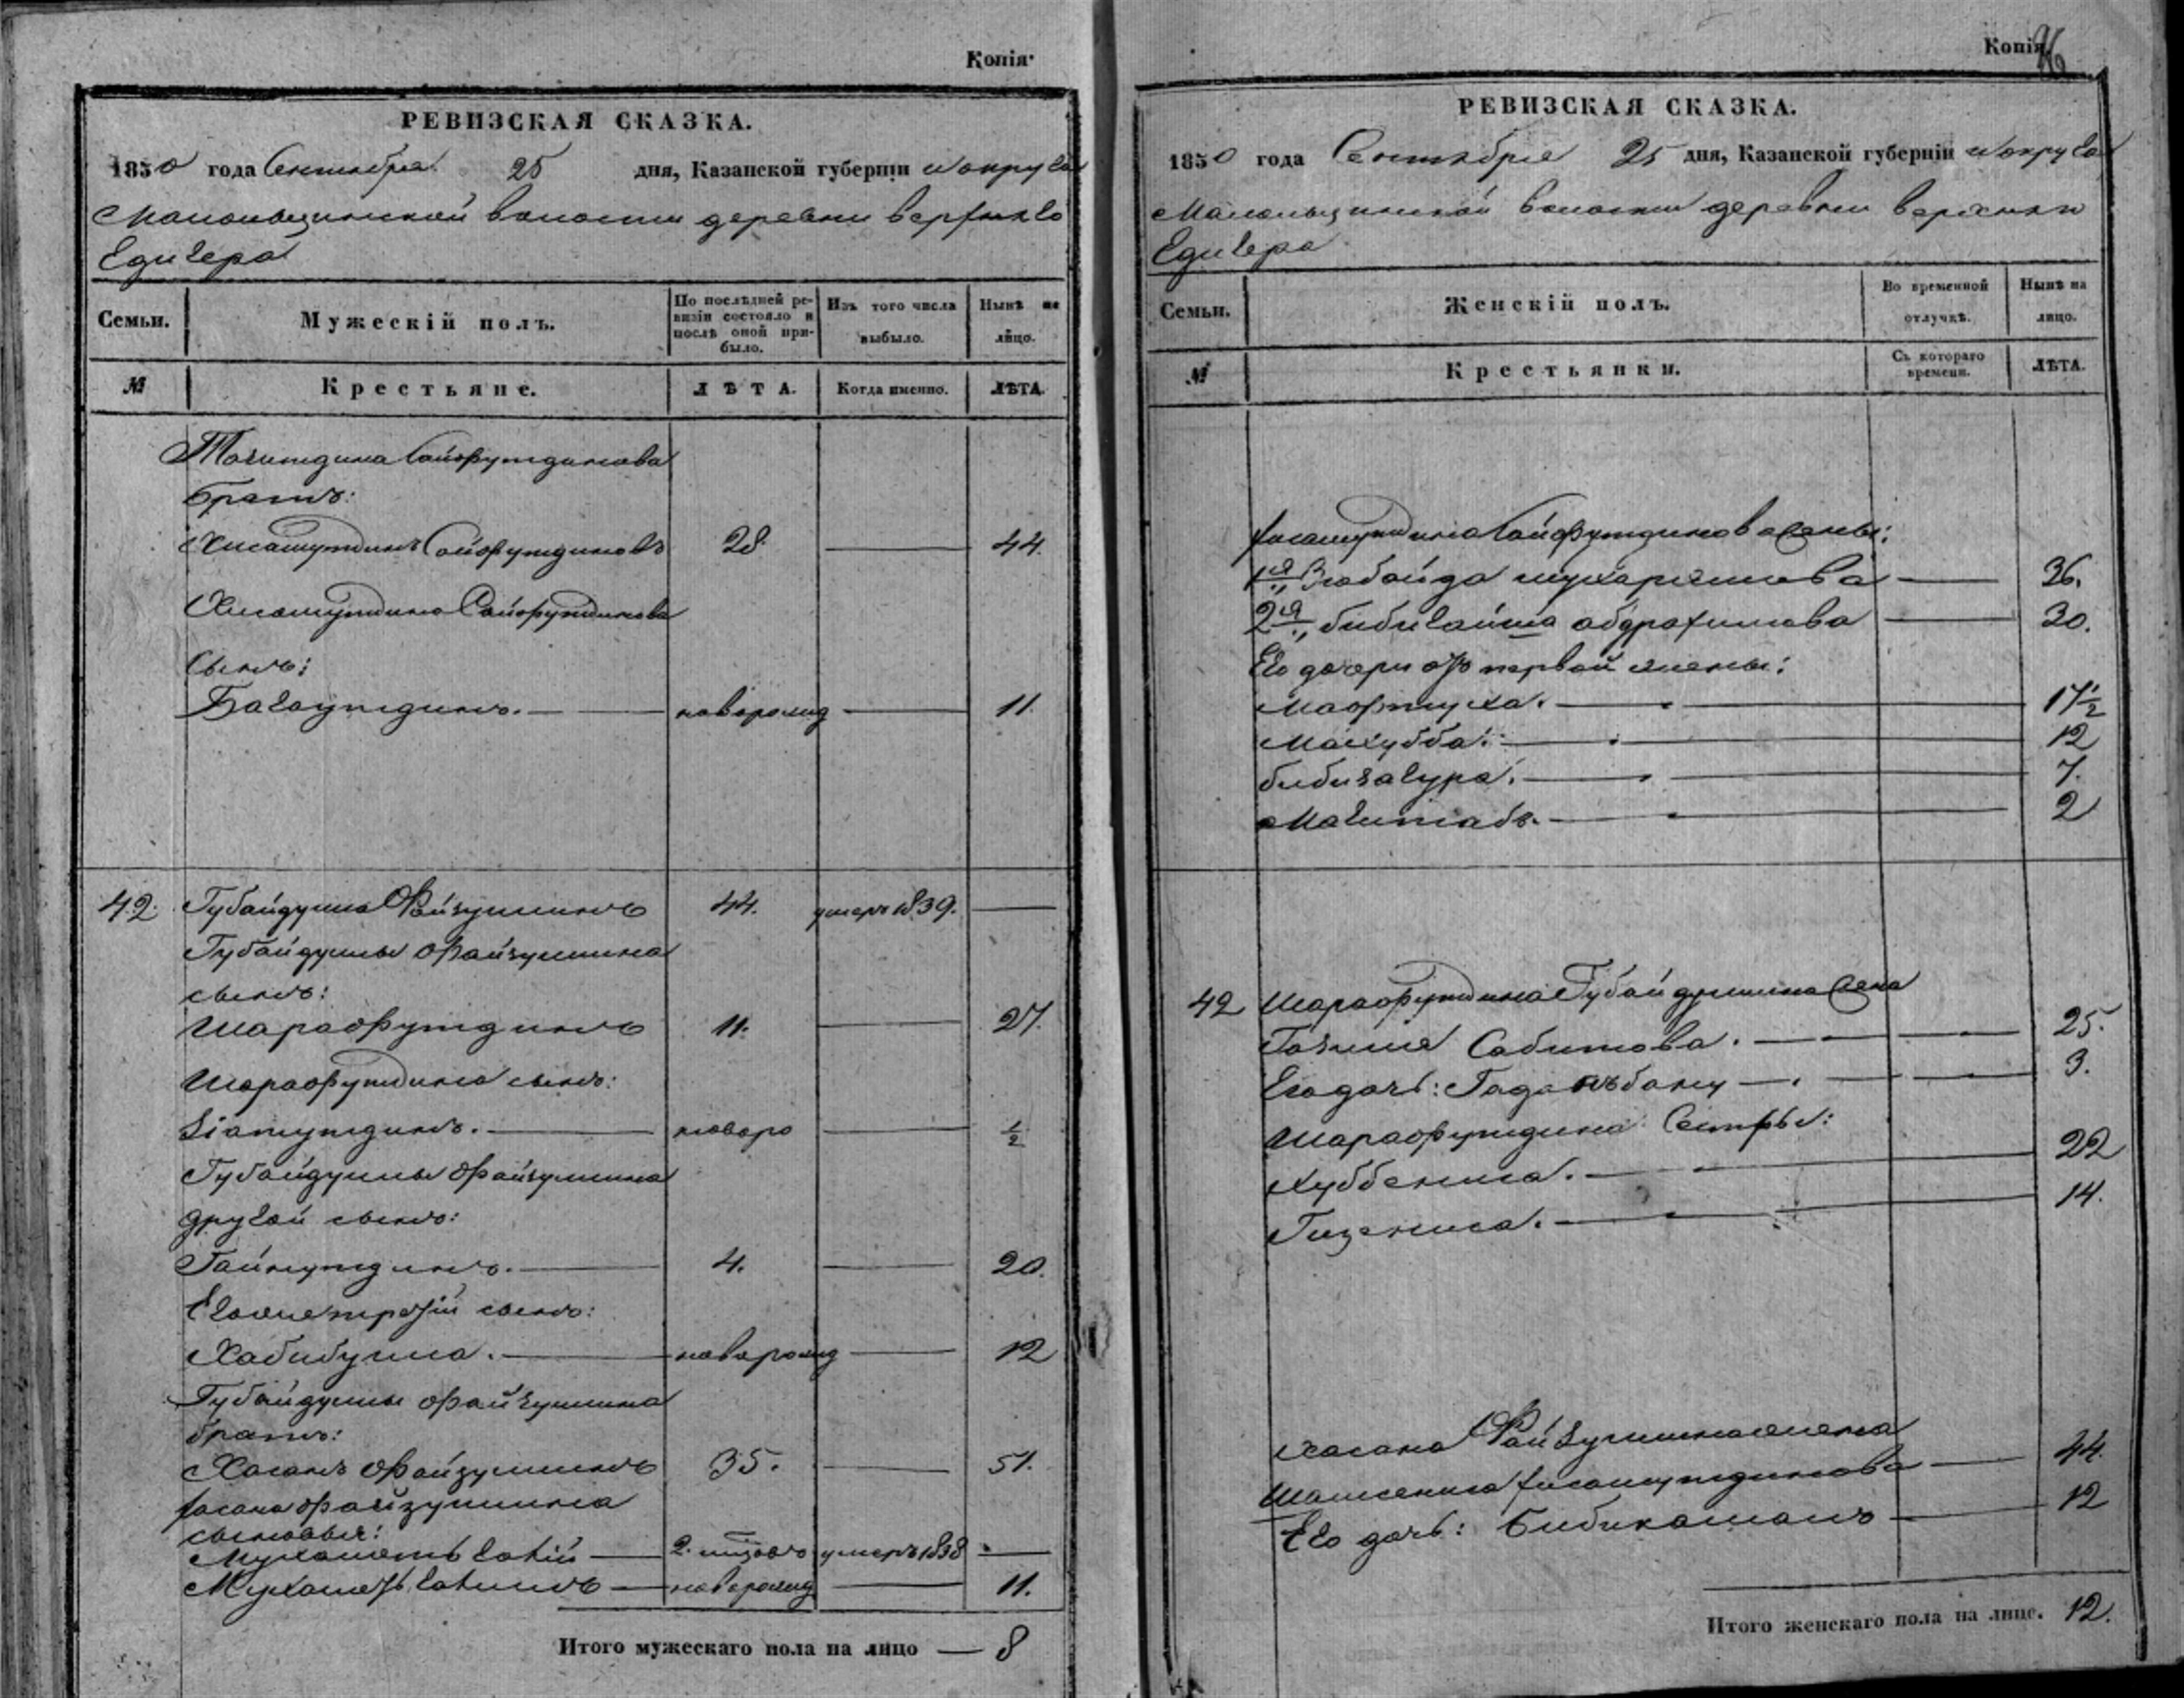 Копія.
РЕВИЗСКАЯ СКАЗКА.
1850 года Сентября 25 дня, Казанской губерніи и округа
волости деревни верхняго
Едигера
Семьи. Мужескій полъ. По послѣдней ревизіи состояло и послѣ оной прибыло. Изъ того числа выбыло. Нынѣ на лицо.
№ Крестьяне. ЛѢТА. Когда именно. ЛѢТА.
Тазитдина Сайфутдинова
братъ:
Хисамутдинъ Сайфутдиновъ 28 — 44.
Хисамутдина Сайфутдинова
сынъ:
Багаутдинъ. — новорожд — 11.
42. Губайдулла Файзуллинъ 44. умеръ 1839. —
Губайдуллы Файзуллина
сынъ:
Шарафутдинъ 11. — 27.
Шарафутдина сынъ:
Зіятутдинъ. — новоро — ½
Губайдуллы Файзуллина
другой сынъ:
Гайнутдинъ. — 4. — 20.
Его же третій сынъ:
Хабибулла. — новорожд — 12
Губайдуллы Файзуллина
братъ:
Хасанъ Файзуллинъ 35. — 51.
Хасана Файзуллина
сыновья:
Мухаметъ — умеръ 1838 —
Мухаметъ — новорожд — 11.
Итого мужескаго пола на лицо — 8
Копія.
96
РЕВИЗСКАЯ СКАЗКА.
1850 года Сентября 25 дня, Казанской губерніи и округа
волости деревни верхняго
Едигера
Семьи. Женскій полъ. Во временной отлучкѣ. Нынѣ на лицо.
№ Крестьянки. Съ котораго времени. ЛѢТА.
Хисамутдина Сайфутдинова жены:
1я Зюбайда — 36.
2я, бибигайша абдрахимова — 30.
Его дочери отъ первой жены:
Мафтуха. — 17½
Махубба. — 12
бибизагура. — 7.
Магитабъ. — 2
42 Шарафутдина Губайдуллина жена
Газиля Сабитова. — 25.
Его дочь: — 3.
Шарафутдина Сестры:
Хуббениса. — 22
Гизениса. — 14.
Хасана Файзуллина жена
Шамсениса Хисамутдинова — 44.
Его дочь: Бибикамалъ — 12
Итого женскаго пола на лице. 12.